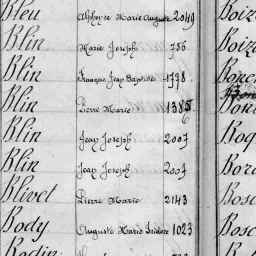 Bleu Alphonse Marie Auguste 2049 Boiz
Blin Marie Joseph 756 Boiz
Blin François Jean Baptiste 1798
Blin Pierre Marie 1385
Blin Jean Joseph 2007 Boq
Blin Jean Joseph 2007 Bor
Blivet Pierre Marie 2143 Bosc
Body Auguste Marie Isidore 1023 Bosc
Bodin